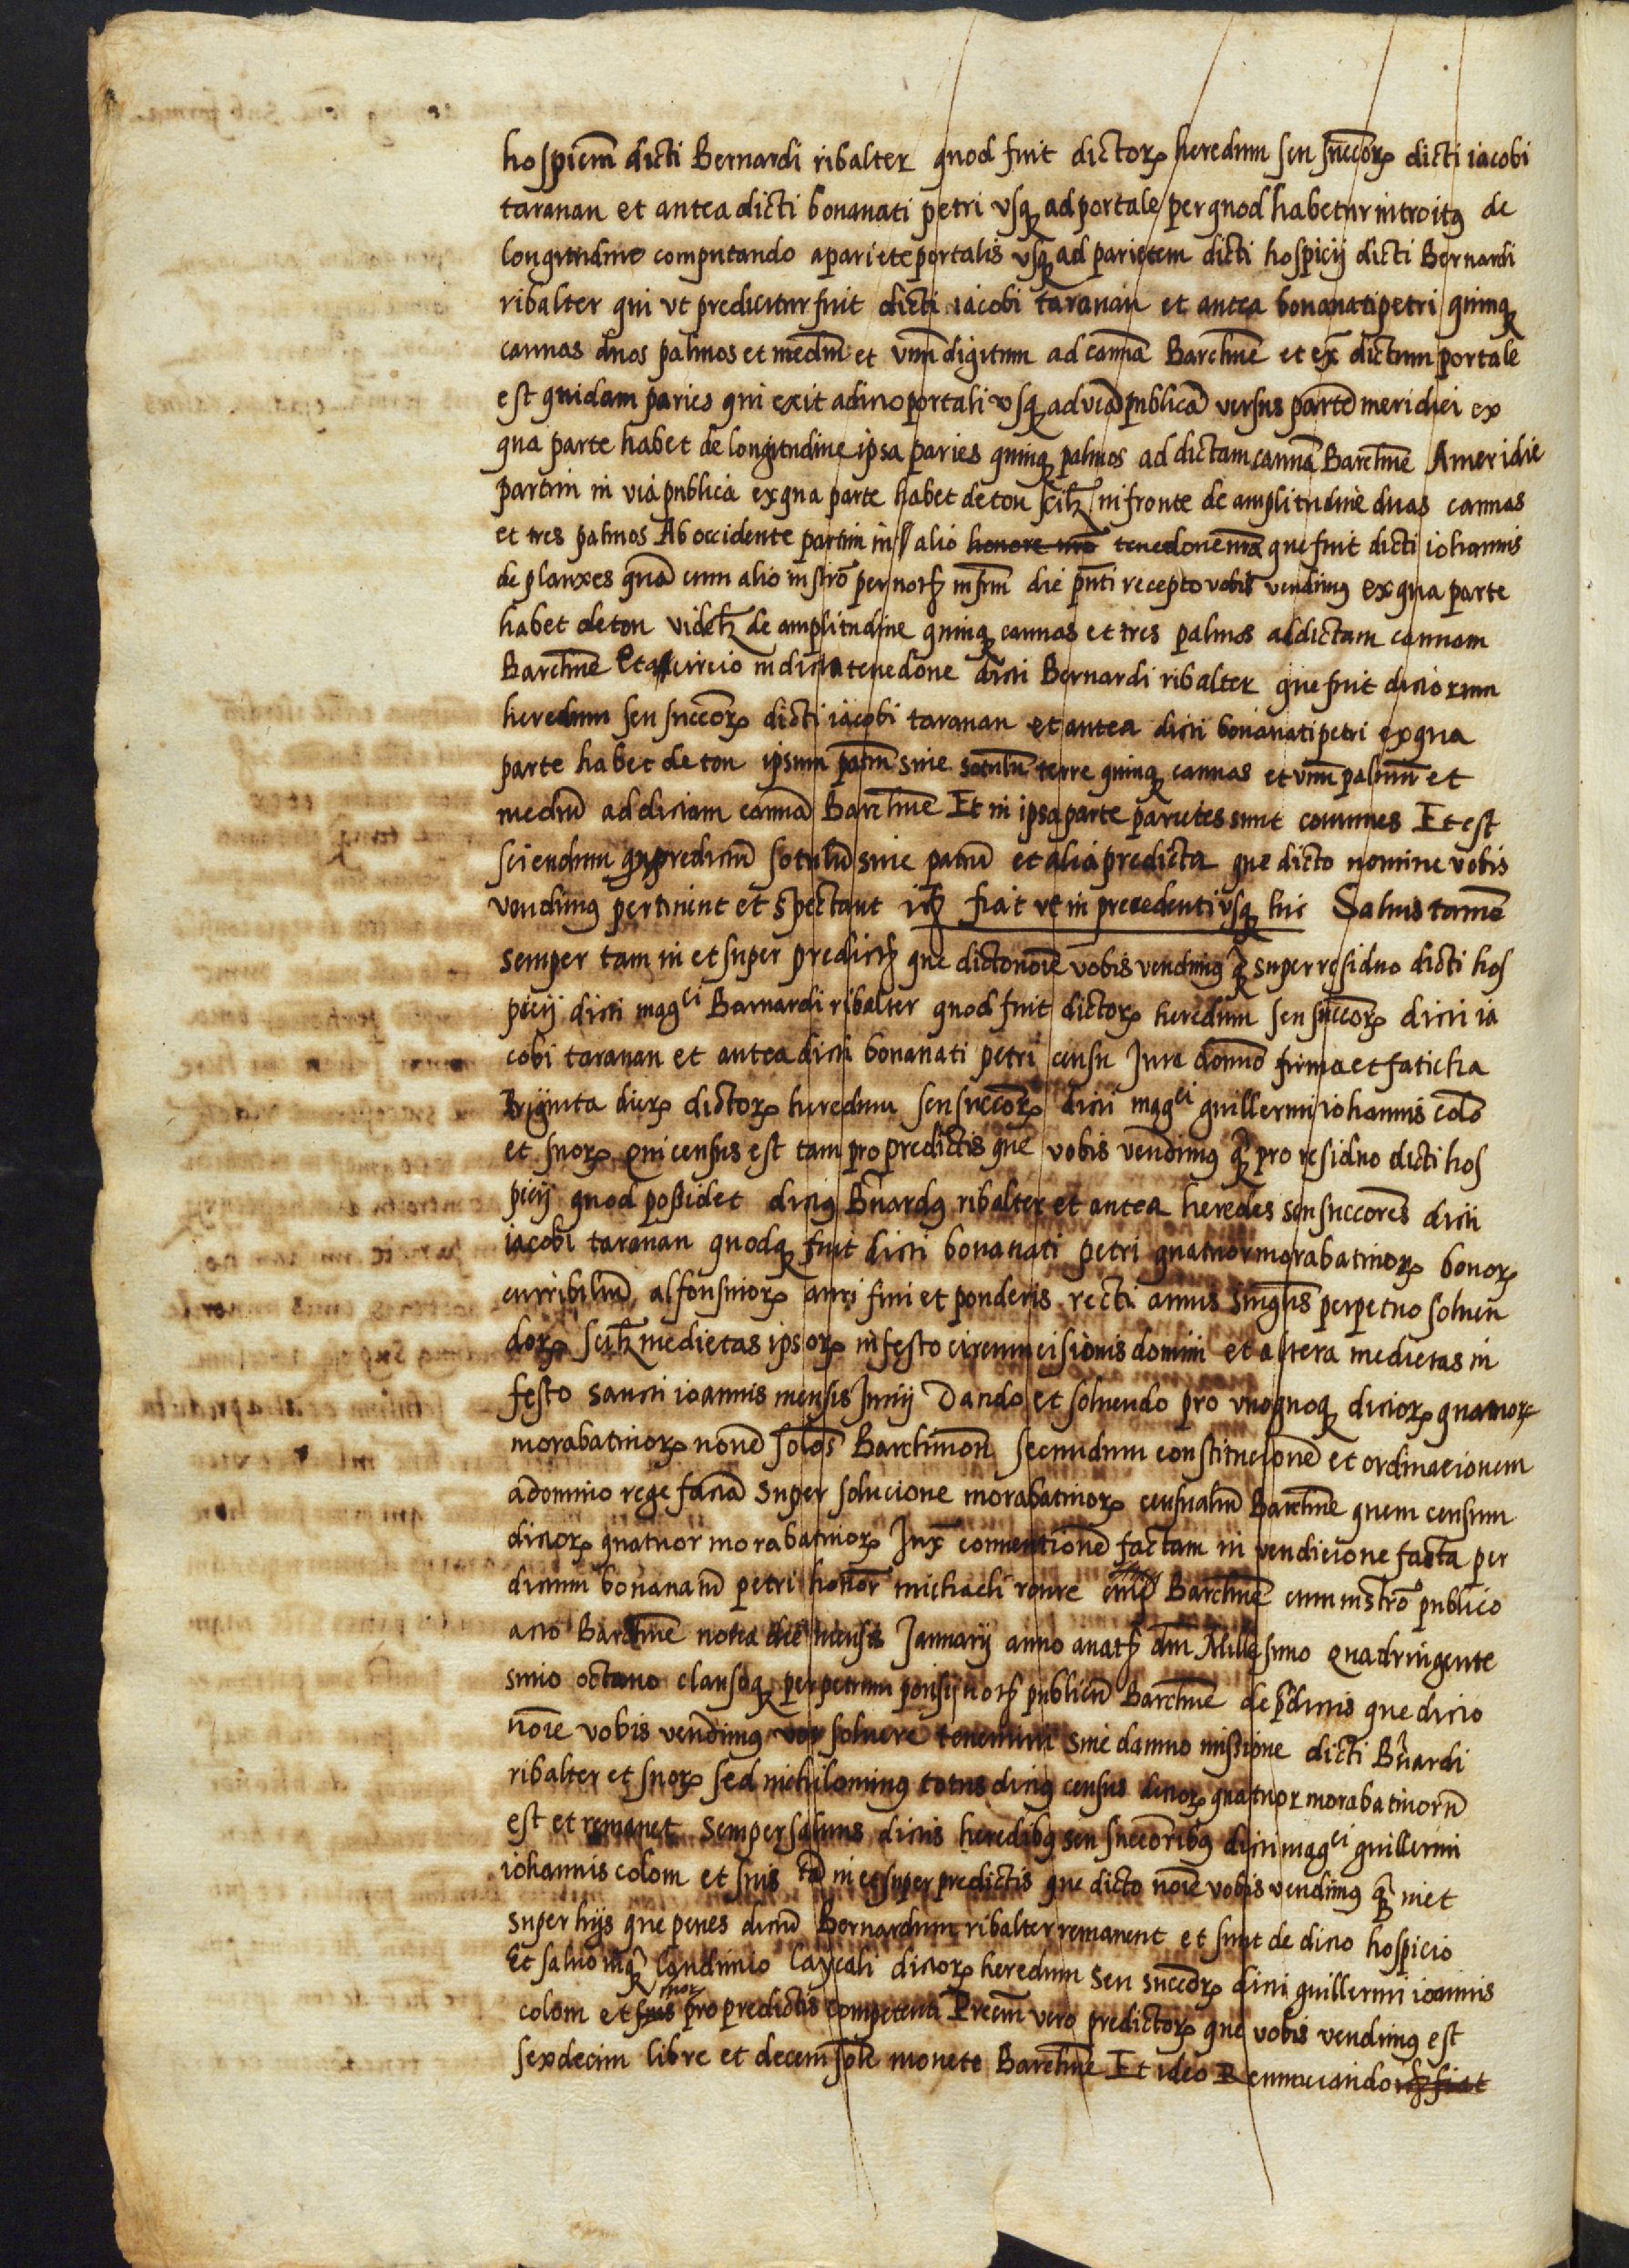 hospiciũm dicti Bernardi ribalter quod fuit dictorꝝ heredum seu succeorꝝ dicti iacobi
taranau et antea dicti bonanati petri vsqꝫ ad portale per quod habetur introitꝰ de
longitudine computando a pariete portalis vsqꝫ ad parietem dicti hospicij dicti Bernardi
ribalter qui vt predicitur fuit dicti iacobi taranau et antea bonanati petri quinqꝫ
cannas duos palmos et mediũ et vnũ digitum ad cannã Barchne et ex̃ dictum portale
est quidam paries qui exit a dicto portali vsqꝫ ad viã publicã versus partẽ meridiei ex
qua parte habet de longitudine ipsa paries quinqꝫ palmos ad dictam cannã Barchne A meridie
partim in via publica ex qua parte habet de tou scilꝫ in fronte de amplitudine duas cannas
et tres palmos Ab occidente partim in alio honore nro tenedone mea que fuit dicti iohannis
de planxes quã cum alio instro per notꝫ infrm die pñti recepto vobis vendimꝰ ex qua parte
habet de tou videlꝫ de amplitudine quinqꝫ cannas et tres palmos ad dictam cannam
Barchne Et a circio in dicta tenedone dicti Bernardi ribalter que fuit dictorum
heredum seu succeorꝝ dicti iacobi taranau et antea dicti bonanati petri ex qua
parte habet de tou ipsum patiũ siue sotulũ terre quinqꝫ cannas et vnũ palmũ et
mediũ ad dictam cannã Barchne Et in ipsa parte parietes sunt comunes Et est
sciendum qꝫ predictũ sotulũ siue patiũ et alia predicta que dicto nomine vobis
vendimꝰ pertinent et spectant etcꝫ fiat vt in precedenti vsqꝫ huc Saluis tamẽ
semper tam in et super predictꝫ que dicto noiẽ vobis vendimꝰ qꝫ super residuo dicti hos
picij dicti magci Bernardi ribalter quod fuit dictorꝝ heredum seu succeorꝝ dicti ia
cobi taranau et antea dicti bonanati petri censu Jure domño firma et faticha
Triginta dierꝝ dictorꝝ heredum seu succeorꝝ dicti magci guillermi iohannis colõ
et suorꝝ Qui census est tam pro predictis que vobis vendimꝰ qꝫ pro residuo dicti hos
picij quod possidet dictꝰ Bñardꝰ ribalter et antea heredes seu succeores dicti
iacobi taranau quodqꝫ fuit dicti bonanati petri quatuor morabatinorꝝ bonorꝝ
curribiliũ alfonsinorꝝ auri fini et ponderis recti annis singlis perpetuo soluen
dorꝝ scilꝫ medietas ipsorꝝ in festo circumcisionis domini et altera medietas in
festo sancti ioannis mensis Junij Dando et soluendo pro vnoquoqꝫ dictorꝝ quatuor
morabatinorꝝ nouẽ solos Barchinon secundum constitucionẽ et ordinacionem
a domino rege factã super solucione morabatinorꝝ censualiũ Barchne quem censum
dictorꝝ quatuor morabatinorꝝ Jux̃ conuentionẽ factam in vendicione facta per
dictum bonanatũ petri honor michaeli roure ciui Barchne cum instro publico
acto Barchne nona die mensis Januarij anno a natꝫ dñi Millesimo Quadringente
simo octauo clausoqꝫ per petrum ponsij notꝫ publicũ Barchne de p̃dictis que dicto
noiẽ vobis vendimꝰ vos soluere tenemini sine damno missione dicti Bñardi
ribalter et suorꝝ sed nichilominꝰ totus dictꝰ census dictorꝝ quatuor morabatinorũ
est et remanet semper saluus dictis heredibꝰ seu succeoribꝰ dicti magci guillermi
iohannis colom et suis tã in et super predictis que dicto noiẽ vobis vendimꝰ qꝫ in et
super hijs que penes dictũ Bernardum ribalter remanent et sunt de dicto hospicio
Et saluo inqꝫ laudimio laycali dictorꝝ heredum seu succeorꝝ dicti guillermi ioannis
colom et suis suorꝝ pro predictis competenti Preciũ vero predictorꝝ que vobis vendimꝰ est
sexdecim libre et decem soli monete Barchne Et ideo Renunciando etcꝫ fiat